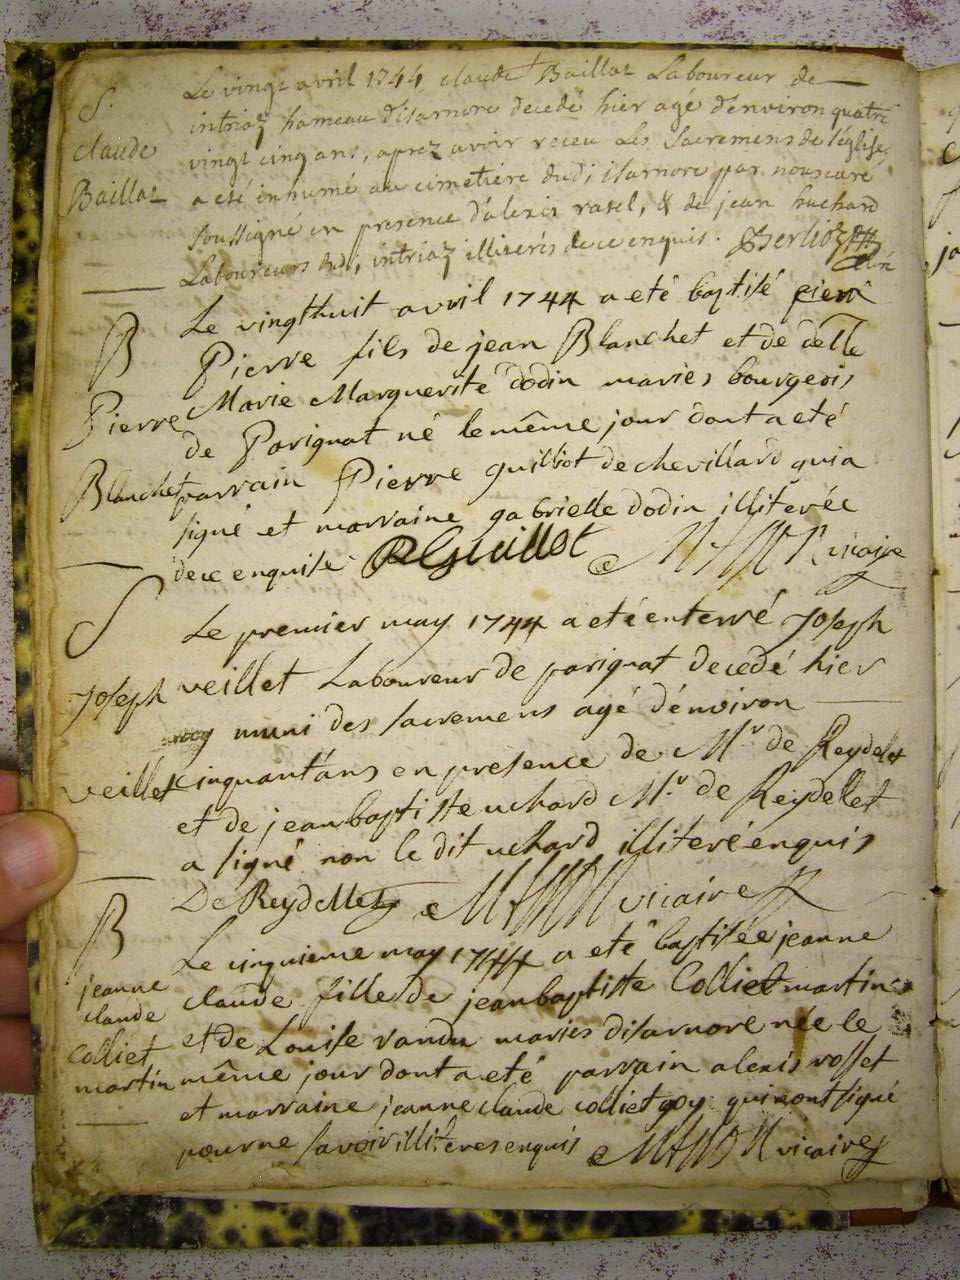 S.
claude
Baillat
Le vingt avril 1744 claude Baillat Laboureur de
intriaz hameau disarnore decedé hier agé d'environ quatre
vingt cinq ans, aprez avoir receu Les Sacremens de l'église,
a eté inhumé au cimetiere dudi isarnore par nous curé
soussigné en presence d'alexis rasel, & de jean huchard
Laboureurs dud, intriaz illiterés de ce enquis.
curé
B
Pierre
Blanchet
Le vingthuit avril 1744 a eté baptisé pierre
Pierre fils de jean Blanchet et de delle
Marie Marguerite dodin mariés bourgeois
de Parignat né le même jour dont a eté
parrain Pierre guilliot de chevillard qui a
signé et marraine gabrielle dodin illiterée
de ce enquise PGuillot vicaire
S
Joseph
veillet
Le premier may 1744 a eté enterré Joseph
veillet Laboureur de parignat decedé hier
muni des sacremens agé d'environ
cinquant'ans en presence de Mr. de Reydelet
et de jeanbaptiste uchard Mr. de Reydellet
a signé non le dit uchard illiteré enquis
De Reydellet vicaire
B
jeanne
claude
Colliet
martin
Le cinquieme may 1744 a eté baptisée jeanne
claude fille de jeanbaptiste Colliet martin
et de Louise vandu mariés disarnore née le
même jour dont a eté parrain alexis rosset
et marraine jeanne claude colliet goy qui n'ont signé
pour ne savoir illiteres enquis vicaire